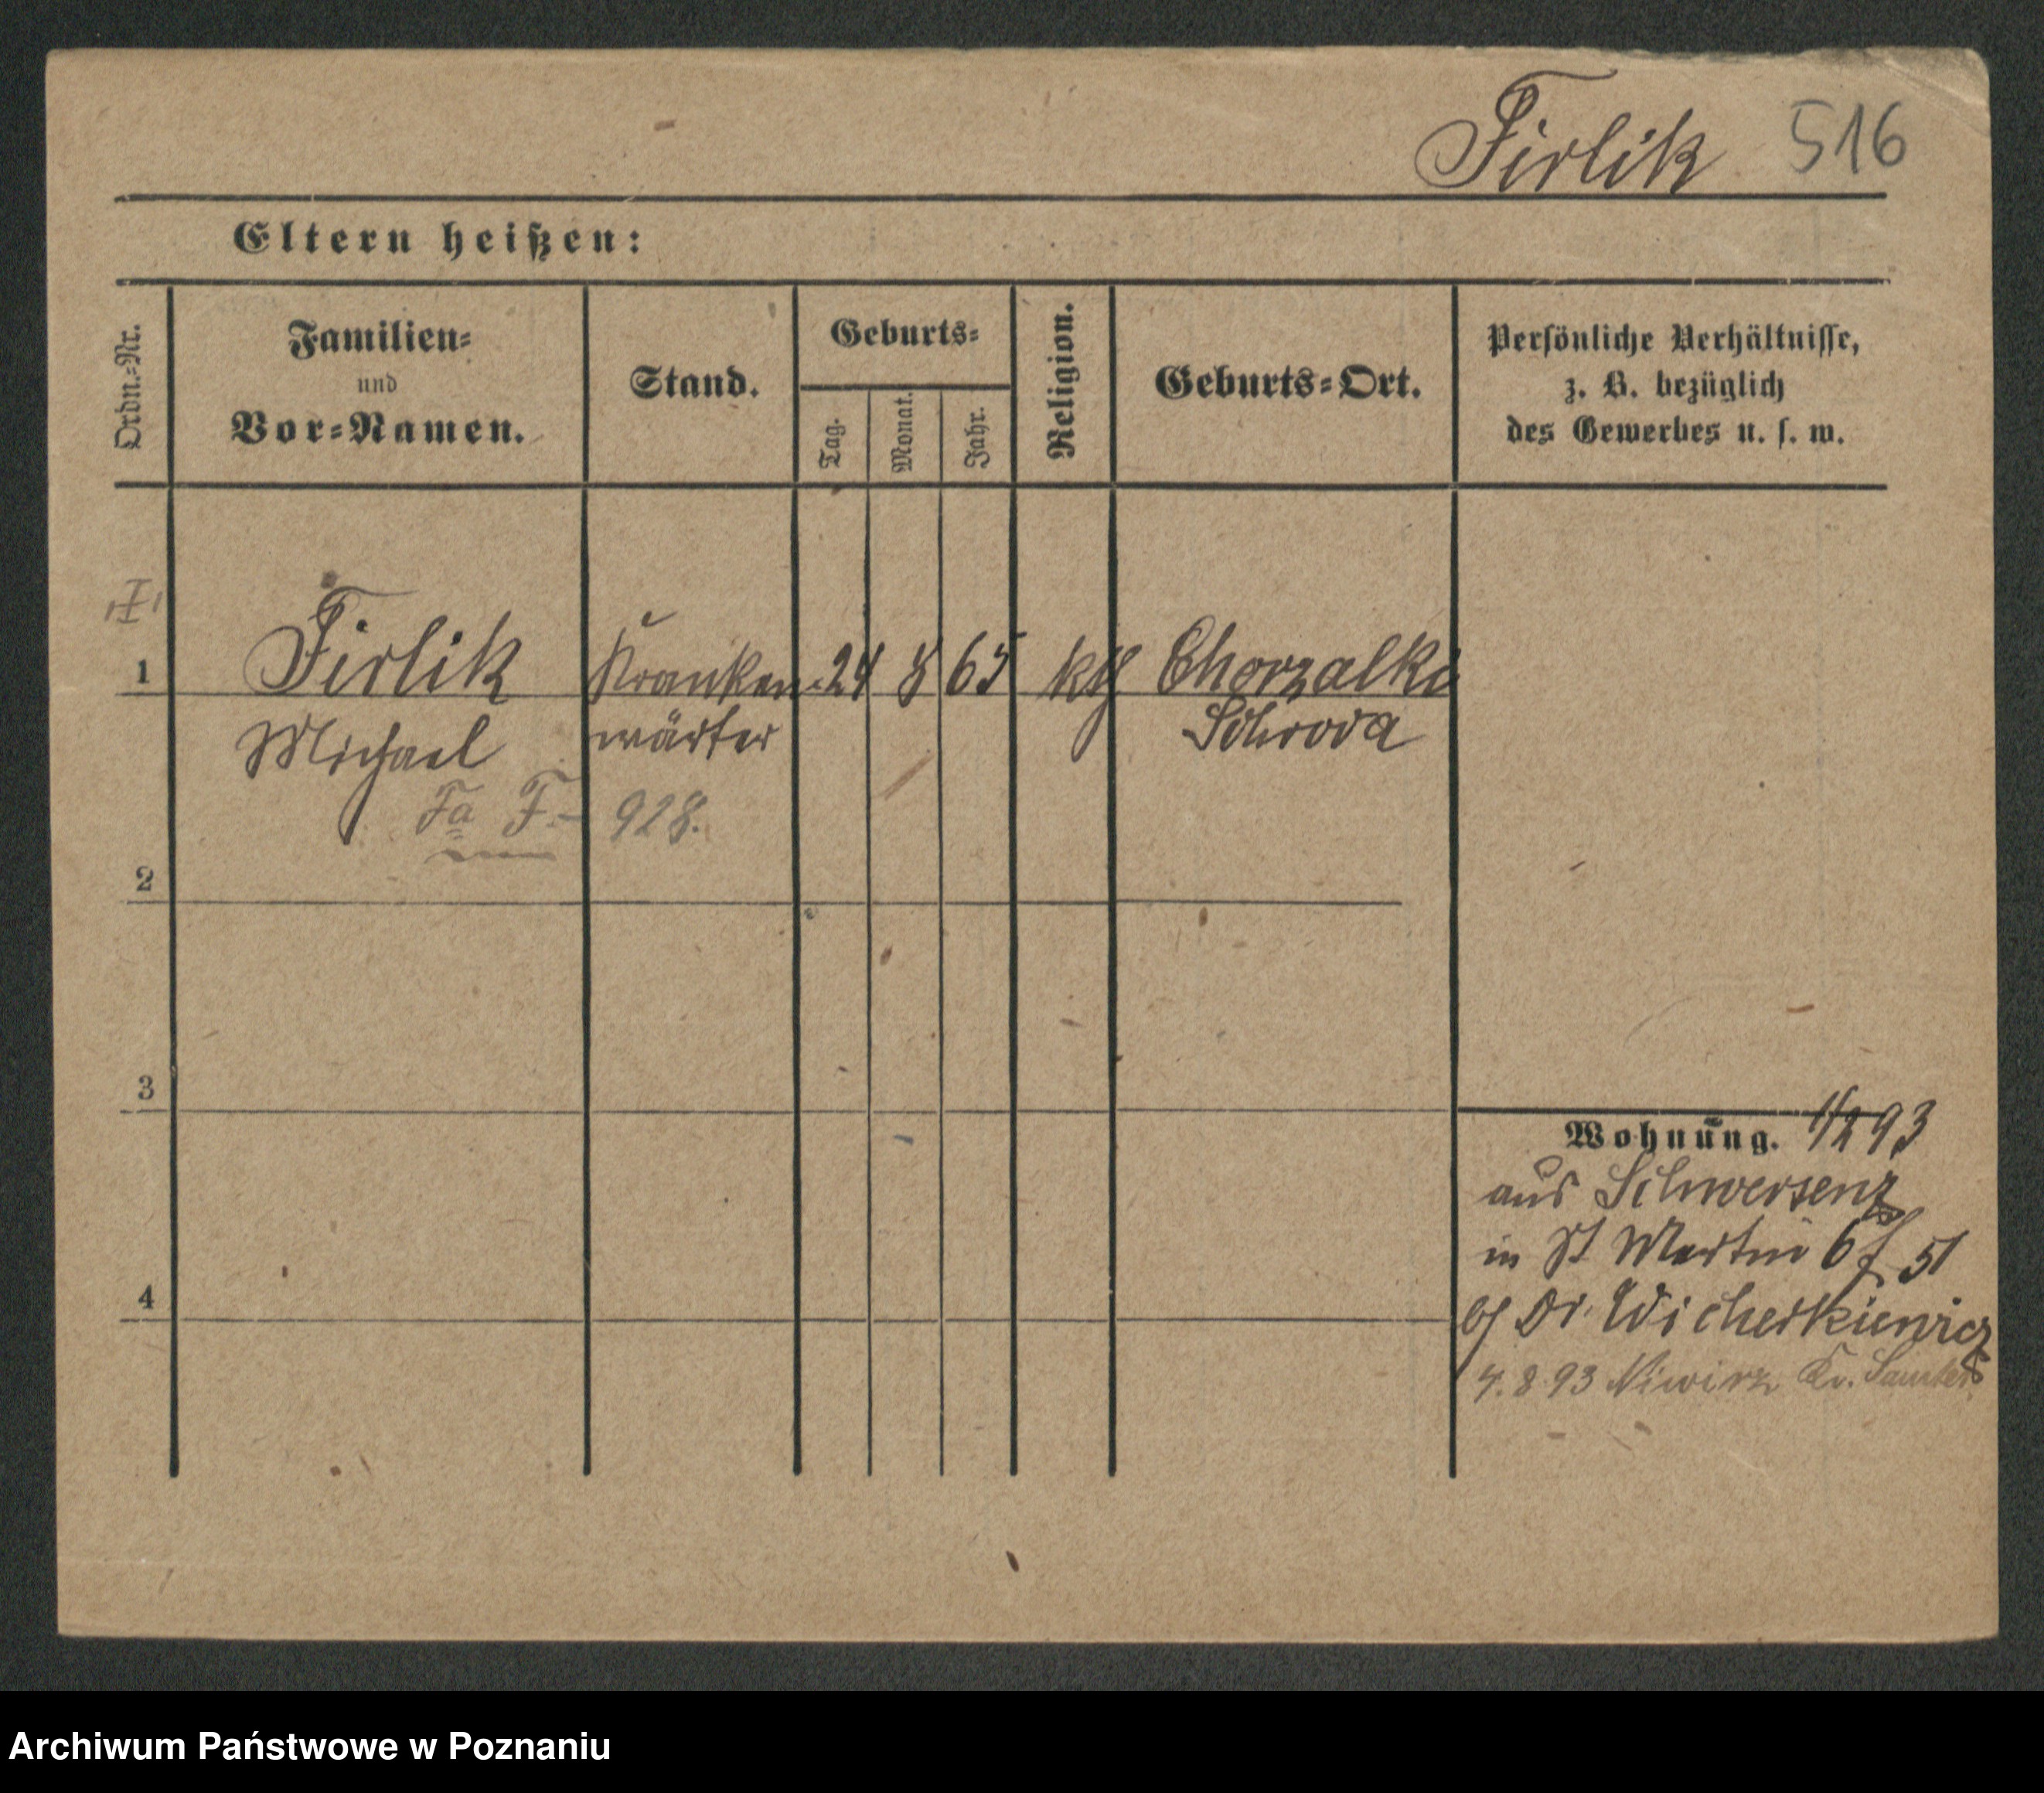 Firlik 516
Eltern heißen:
Ordn.-Nr.
Familien-
und
Vor-Namen.
Stand.
Geburts-
Tag.
Monat.
Jahr.
Religion.
Geburts-Ort.
Persönliche Verhältnisse,
z. B. bezüglich
des Gewerbes u. s. w.
I
1 Firlik Kranken- 24 8 65 kth Chorzalki
Michael wärter Schroda
Fa F.- 928.
2
3
4
Wohnung. 1/2 93
aus Schwersenz
in St Martin 6 51
bei Dr. Wicherkiewicz
4.8.93 Kr. Samter
Archiwum Państwowe w Poznaniu